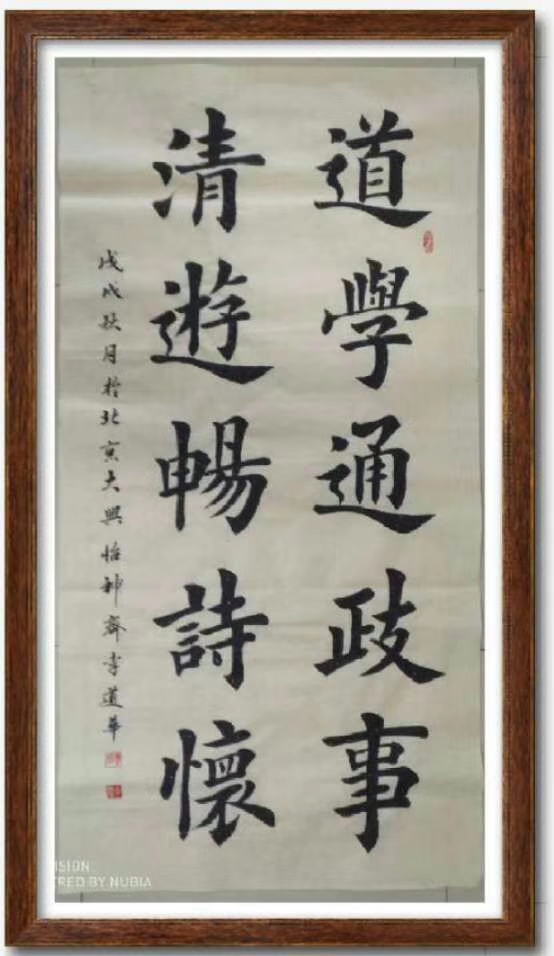 道學通政事
清遊暢詩懷
戊戌秋月於北京大興怡神齋李道華
ISION
RED BY NUBIA